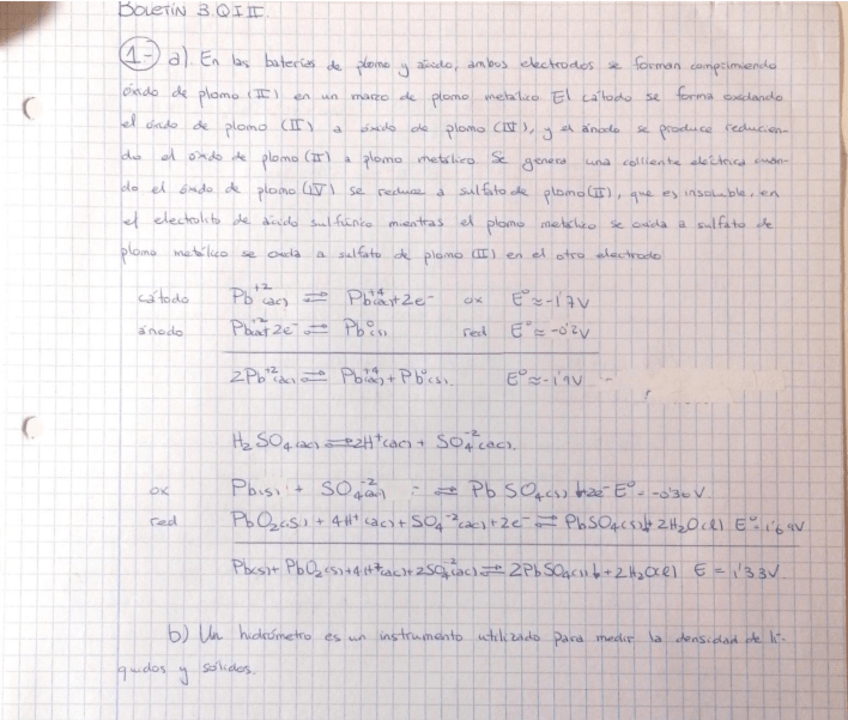 BOLETÍN 3. QI II.
1- a). En las baterías de plomo y ácido, ambos electrodos se forman comprimiendo
óxido de plomo (II) en un marco de plomo metálico. El cátodo se forma oxidando
el óxido de plomo (II) a óxido de plomo (IV), y el ánodo se produce reducien-
do el óxido de plomo (II) a plomo metálico. Se genera una colliente eléctrica cuan-
do el óxido de plomo (IV) se reduce a sulfato de plomo (II), que es insoluble, en
el electrolito de ácido sulfúrico mientras el plomo metálico se oxida a sulfato de
plomo metálico se oxida a sulfato de plomo (II) en el otro electrodo
cátodo Pb+2(ac) ⇌ Pb+4(ac)+2e- ox Eº≈-1'7V
ánodo Pb+2(ac)+2e- ⇌ Pbº(s) red Eº≈-0'2V
2Pb+2(ac) ⇌ Pb+4(ac)+Pbº(s). Eº≈-1'9V
H2SO4(ac) ⇌ 2H+(ac) + SO4-2(ac).
ox Pb(s) + SO4-2(ac) ⇌ PbSO4(s)+2e- Eº=-0'30V.
red PbO2(s) + 4H+(ac) + SO4-2(ac) + 2e- ⇌ PbSO4(s)+2H2O(l) Eº=1'69V
Pb(s)+ PbO2(s)+4H+(ac)+2SO4-2(ac) ⇌ 2PbSO4(s)+2H2O(l) E = 1'33V
b) Un hidrómetro es un instrumento utilizado para medir la densidad de lí-
quidos y sólidos.